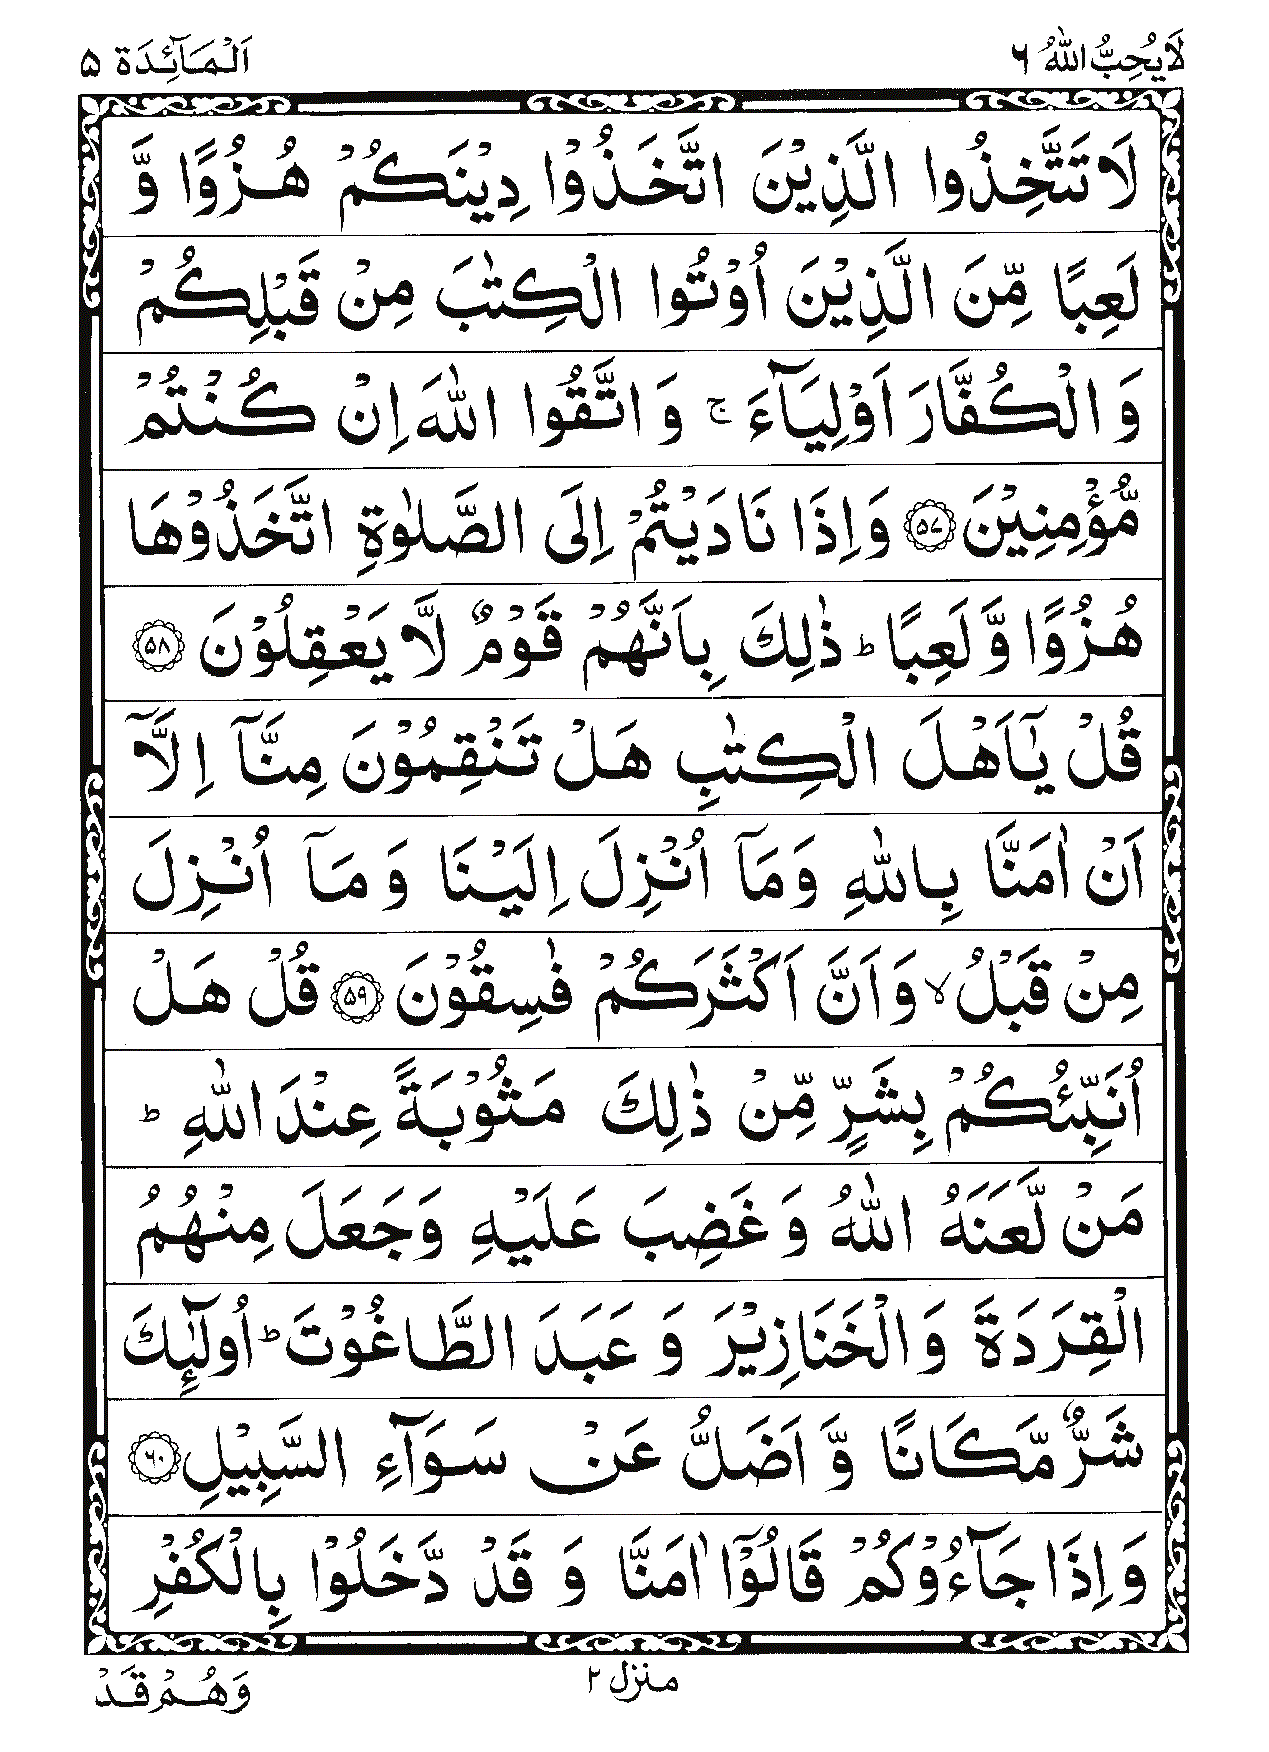 لَا یُحِبُّ اللّٰهُ ۶
اَلْمَآئِدَة ۵
لَا تَتَّخِذُوا الَّذِیْنَ اتَّخَذُوْا دِیْنَكُمْ هُزُوًا وَّ
لَعِبًا مِّنَ الَّذِیْنَ اُوْتُوا الْكِتٰبَ مِنْ قَبْلِكُمْ
وَ الْكُفَّارَ اَوْلِیَآءَ ۚ وَ اتَّقُوا اللّٰهَ اِنْ كُنْتُمْ
مُّؤْمِنِیْنَ ﴿۵۷﴾ وَ اِذَا نَادَیْتُمْ اِلَى الصَّلٰوةِ اتَّخَذُوْهَا
هُزُوًا وَّ لَعِبًا ؕ ذٰلِكَ بِاَنَّهُمْ قَوْمٌ لَّا یَعْقِلُوْنَ ﴿۵۸﴾
قُلْ یٰۤاَهْلَ الْكِتٰبِ هَلْ تَنْقِمُوْنَ مِنَّاۤ اِلَّاۤ
اَنْ اٰمَنَّا بِاللّٰهِ وَ مَاۤ اُنْزِلَ اِلَیْنَا وَ مَاۤ اُنْزِلَ
مِنْ قَبْلُ ۙ وَ اَنَّ اَكْثَرَكُمْ فٰسِقُوْنَ ﴿۵۹﴾ قُلْ هَلْ
اُنَبِّئُكُمْ بِشَرٍّ مِّنْ ذٰلِكَ مَثُوْبَةً عِنْدَ اللّٰهِ ؕ
مَنْ لَّعَنَهُ اللّٰهُ وَ غَضِبَ عَلَیْهِ وَ جَعَلَ مِنْهُمُ
الْقِرَدَةَ وَ الْخَنَازِیْرَ وَ عَبَدَ الطَّاغُوْتَ ؕ اُولٰٓىِٕكَ
شَرٌّ مَّكَانًا وَّ اَضَلُّ عَنْ سَوَآءِ السَّبِیْلِ ﴿۶۰﴾
وَ اِذَا جَآءُوْكُمْ قَالُوْۤا اٰمَنَّا وَ قَدْ دَّخَلُوْا بِالْكُفْرِ
منزل ۲
وَ هُمْ قَدْ